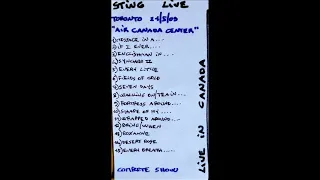 STING LIVE
TORONTO 24/5/05
"AIR CANADA CENTER"
1) MESSAGE IN A....
2) IF I EVER....
3) ENGLISHMAN IN....
4) SYNCHRO II
5) EVERY LITTLE
6) FIELDS OF GOLD
7) SEVEN DAYS
8) WALKING ON/TRAIN....
9) FORTRESS AROUND....
10) SHAPE OF MY....
11) WRAPPED AROUND...
12) BRING/WHEN
13) ROXANNE
14) DESERT ROSE
15) EVERY BREATH....
COMPLETE SHOW
LIVE IN CANADA